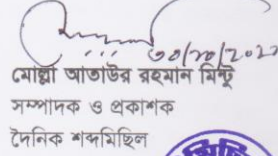 মোল্লা আতাউর রহমান মিন্টু
সম্পাদক ও প্রকাশক
দৈনিক শব্দমিছিল